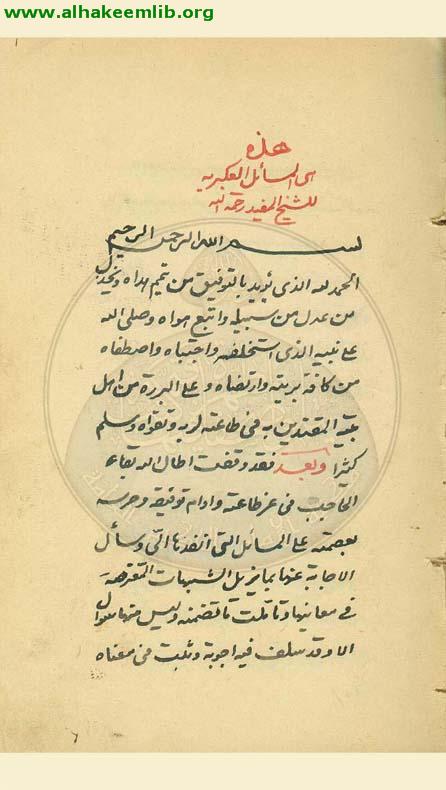 www.alhakeemlib.org
هذه
المسائل العكبريه
للشيخ المفيد رحمه الله
بسم الله الرحمن الرحيم
الحمد لله الذى يؤيد بالتوفيق من تمم هداه ويخذل
من عدل من سبيله واتبع هواه وصلى الله
على نبيه الذى استخلفه واجتباه واصطفاه
من كافة بريته وارتضاه وعلى البررة من اهل
بيته المقتدين به فى طاعته لربه وتقواه وسلم
كثيرا وبعد فقد وقفت اطال الله بقاء
الحاجب فى عز طاعته وادام توفيقه وحرسه
بعصمته على المسائل التى انفذها الى وسأل
الاجابة عنها بما يزيل الشبهات المعترضة
فى معانيها وتأملت ما تضمنته وليس منها سؤال
الا وقد سلف فيه اجوبة وثبت فى معناه